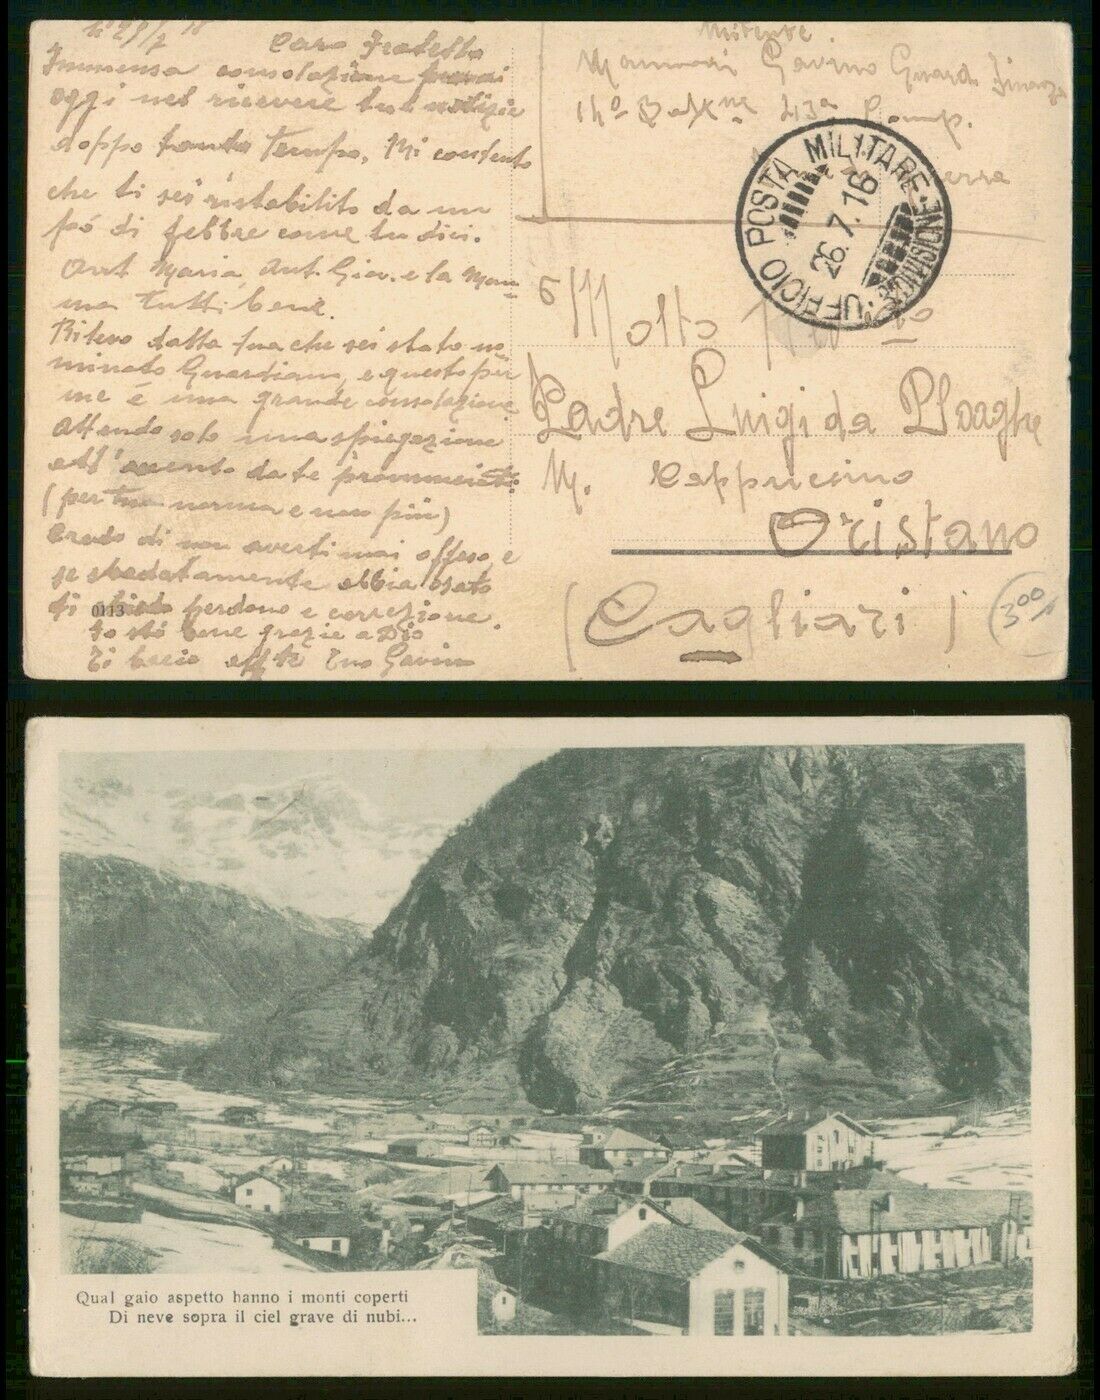 Caro Fratello
Immensa consolazione provai
oggi nel ricevere tue notizie
doppo tanto Tempo. Mi contento
che ti sei ristabilito da un
pó di febbre come tu dici.
Maria, Ant. Giov. e la Mam-
ma tutti bene.
Rilevo dalla tua che sei stato no
minato Guardiano, e questo per
me é una grande consolazione
attendo solo una spiegazione
da te
(per tua norma e non più)
Credo di non averti mai offeso, e
se sbadatamente abbia osato
di perdono e correzione.
Io stó bene grazie a Dio
Ti bacio aff. tuo Gavino
0113
Mittente.
Gavino Guardia Finanza
14° 43a Comp.
UFFICIO POSTA MILITARE DIVISIONE
26.7.16
Molto
Padre Luigi da Ploaghe
M. Cappuccino
Oristano
(Cagliari)
3 00
Qual gaio aspetto hanno i monti coperti
Di neve sopra il ciel grave di nubi...